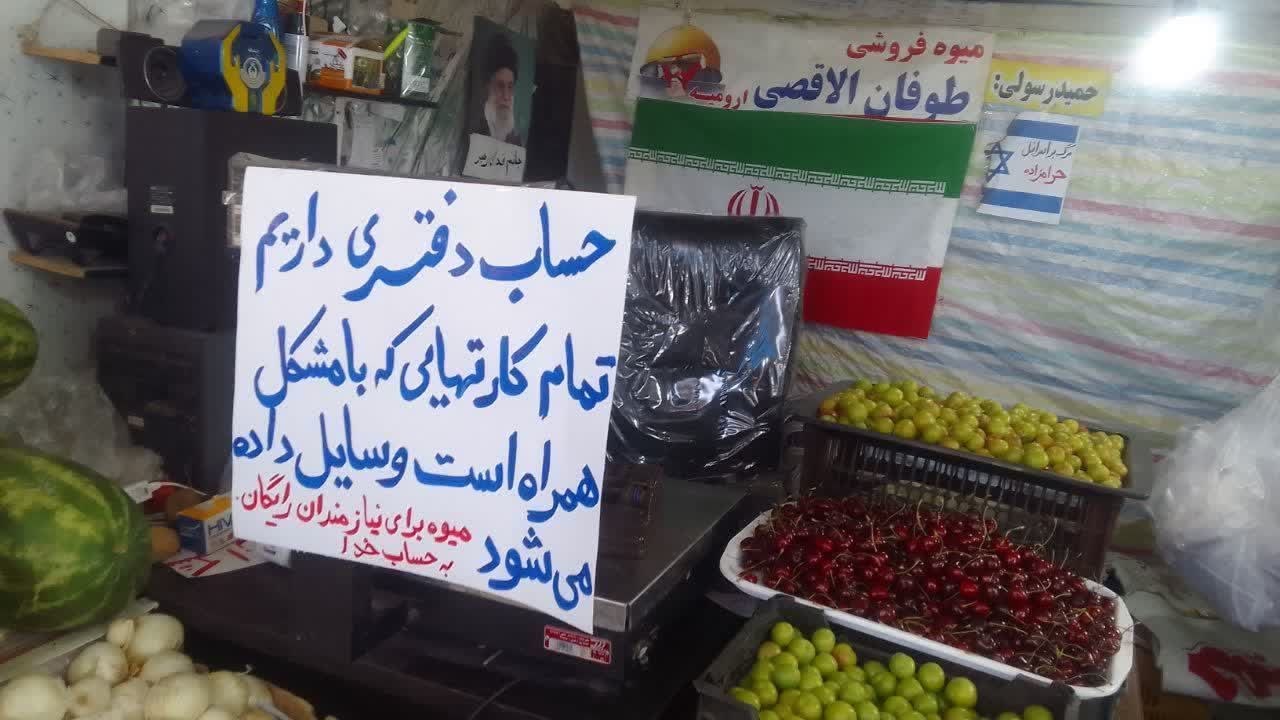 میوه فروشی
طوفان الاقصی ارومیه
حمید رسولی:
مرگ بر اسرائیل
حرامزاده
حساب دفتری داریم
تمام کارتهایی که با مشکل
همراه است وسایل داده
می شود
میوه برای نیازمندان رایگان.
به حساب خدا